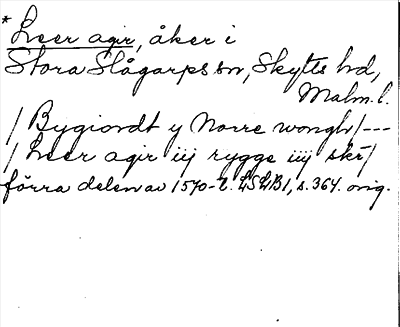 * Leer agir, åker i
Stora Slågarps sn, Skytts hd,
Malm. l.
/ Bygiordt y Norre wongh / ---
/ Leer agir iij rygge iiij skr /
förra delen av 1570-t. LSLB1, s. 364. orig.